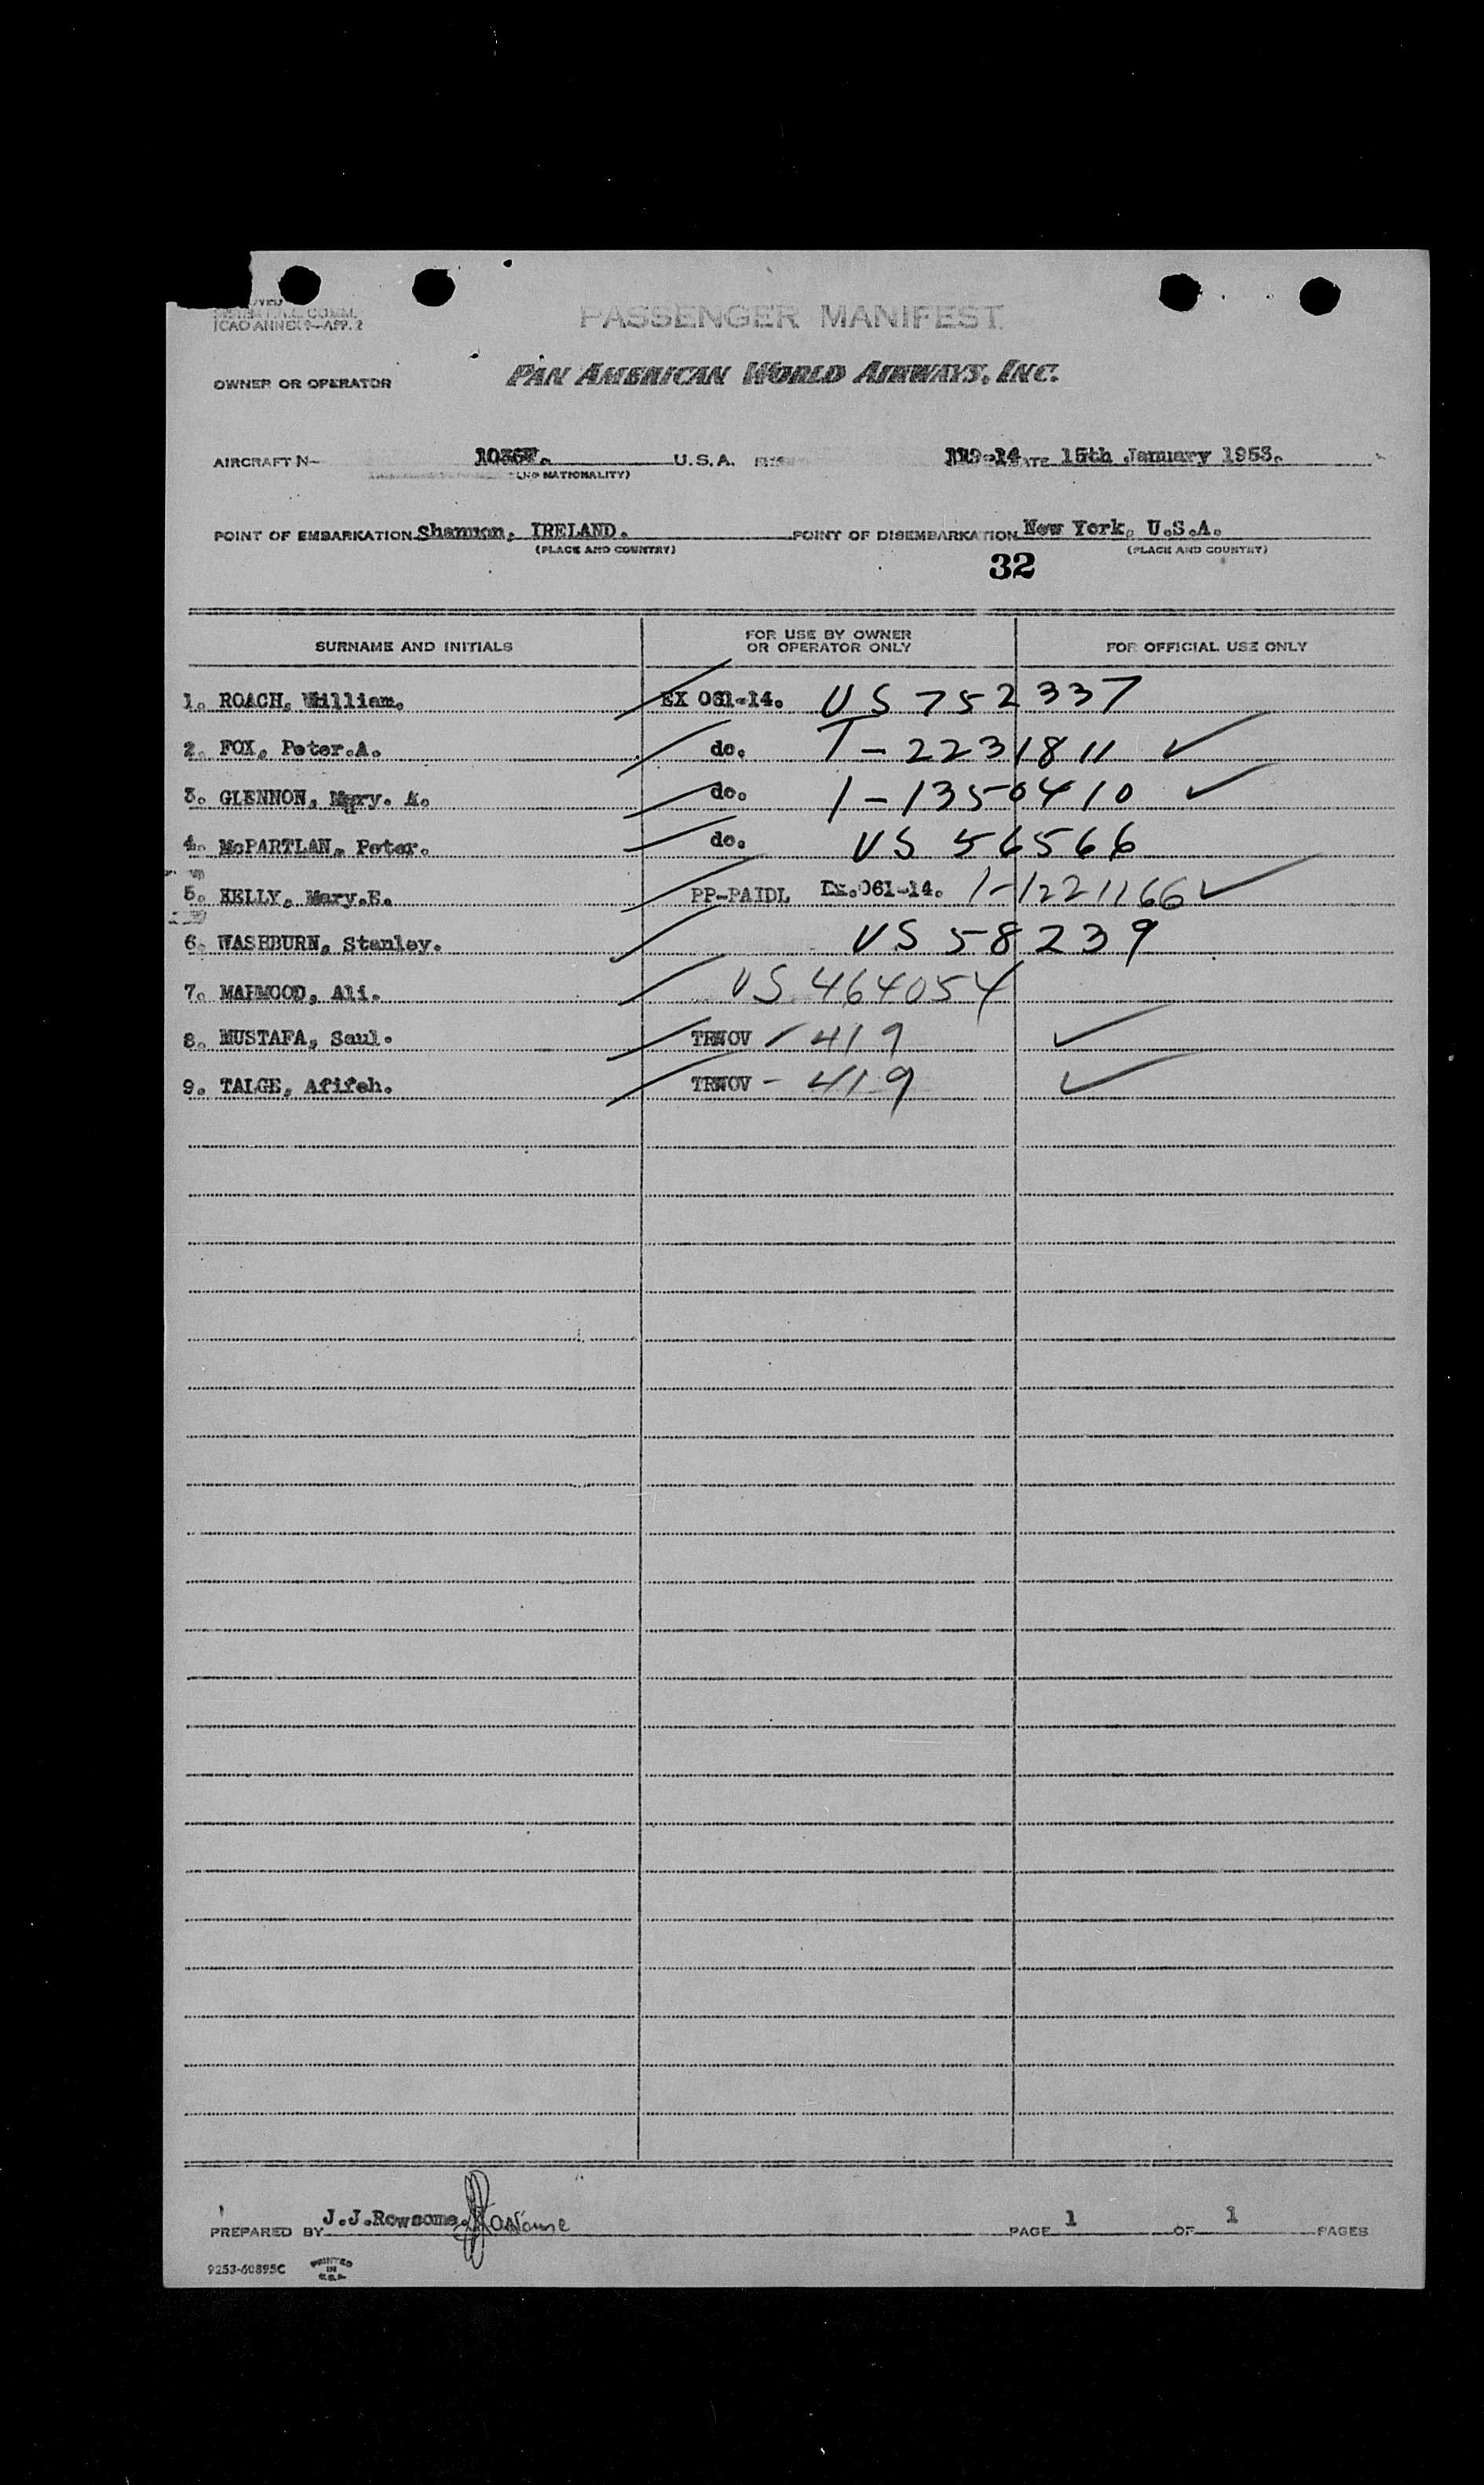 I.C.A.O ANNEX 9—APP. 2
PASSENGER MANIFEST
OWNER OR OPERATOR PAN AMERICAN WORLD AIRWAYS, INC.
AIRCRAFT N— 1036V. U.S.A. 119-14 DATE 15th January 1953.
(AND NATIONALITY)
POINT OF EMBARKATION Shannon, IRELAND. POINT OF DISEMBARKATION New York, U.S.A.
(PLACE AND COUNTRY) (PLACE AND COUNTRY)
32
SURNAME AND INITIALS FOR USE BY OWNER OR OPERATOR ONLY FOR OFFICIAL USE ONLY
1. ROACH, William. EX 061-14. US 752337
2. FOX, Peter.A. do. T-2231811 ✓
3. GLENNON, Mary. A. do. 1-1350410 ✓
4. McPARTLAN, Peter. do. US 56566
5. KELLY, Mary.E. PP-PAIDL Ex.061-14. 1-1221166 ✓
6. WASHBURN, Stanley. US 58239
7. MAHMOOD, Ali. US 464054
8. MUSTAFA, Saul. TRWOV - 419 ✓
9. TALGE, Afifeh. TRWOV - 419 ✓
PREPARED BY J.J.Rowsome. PAGE 1 OF 1 PAGES
9253-60895C PRINTED IN U.S.A.